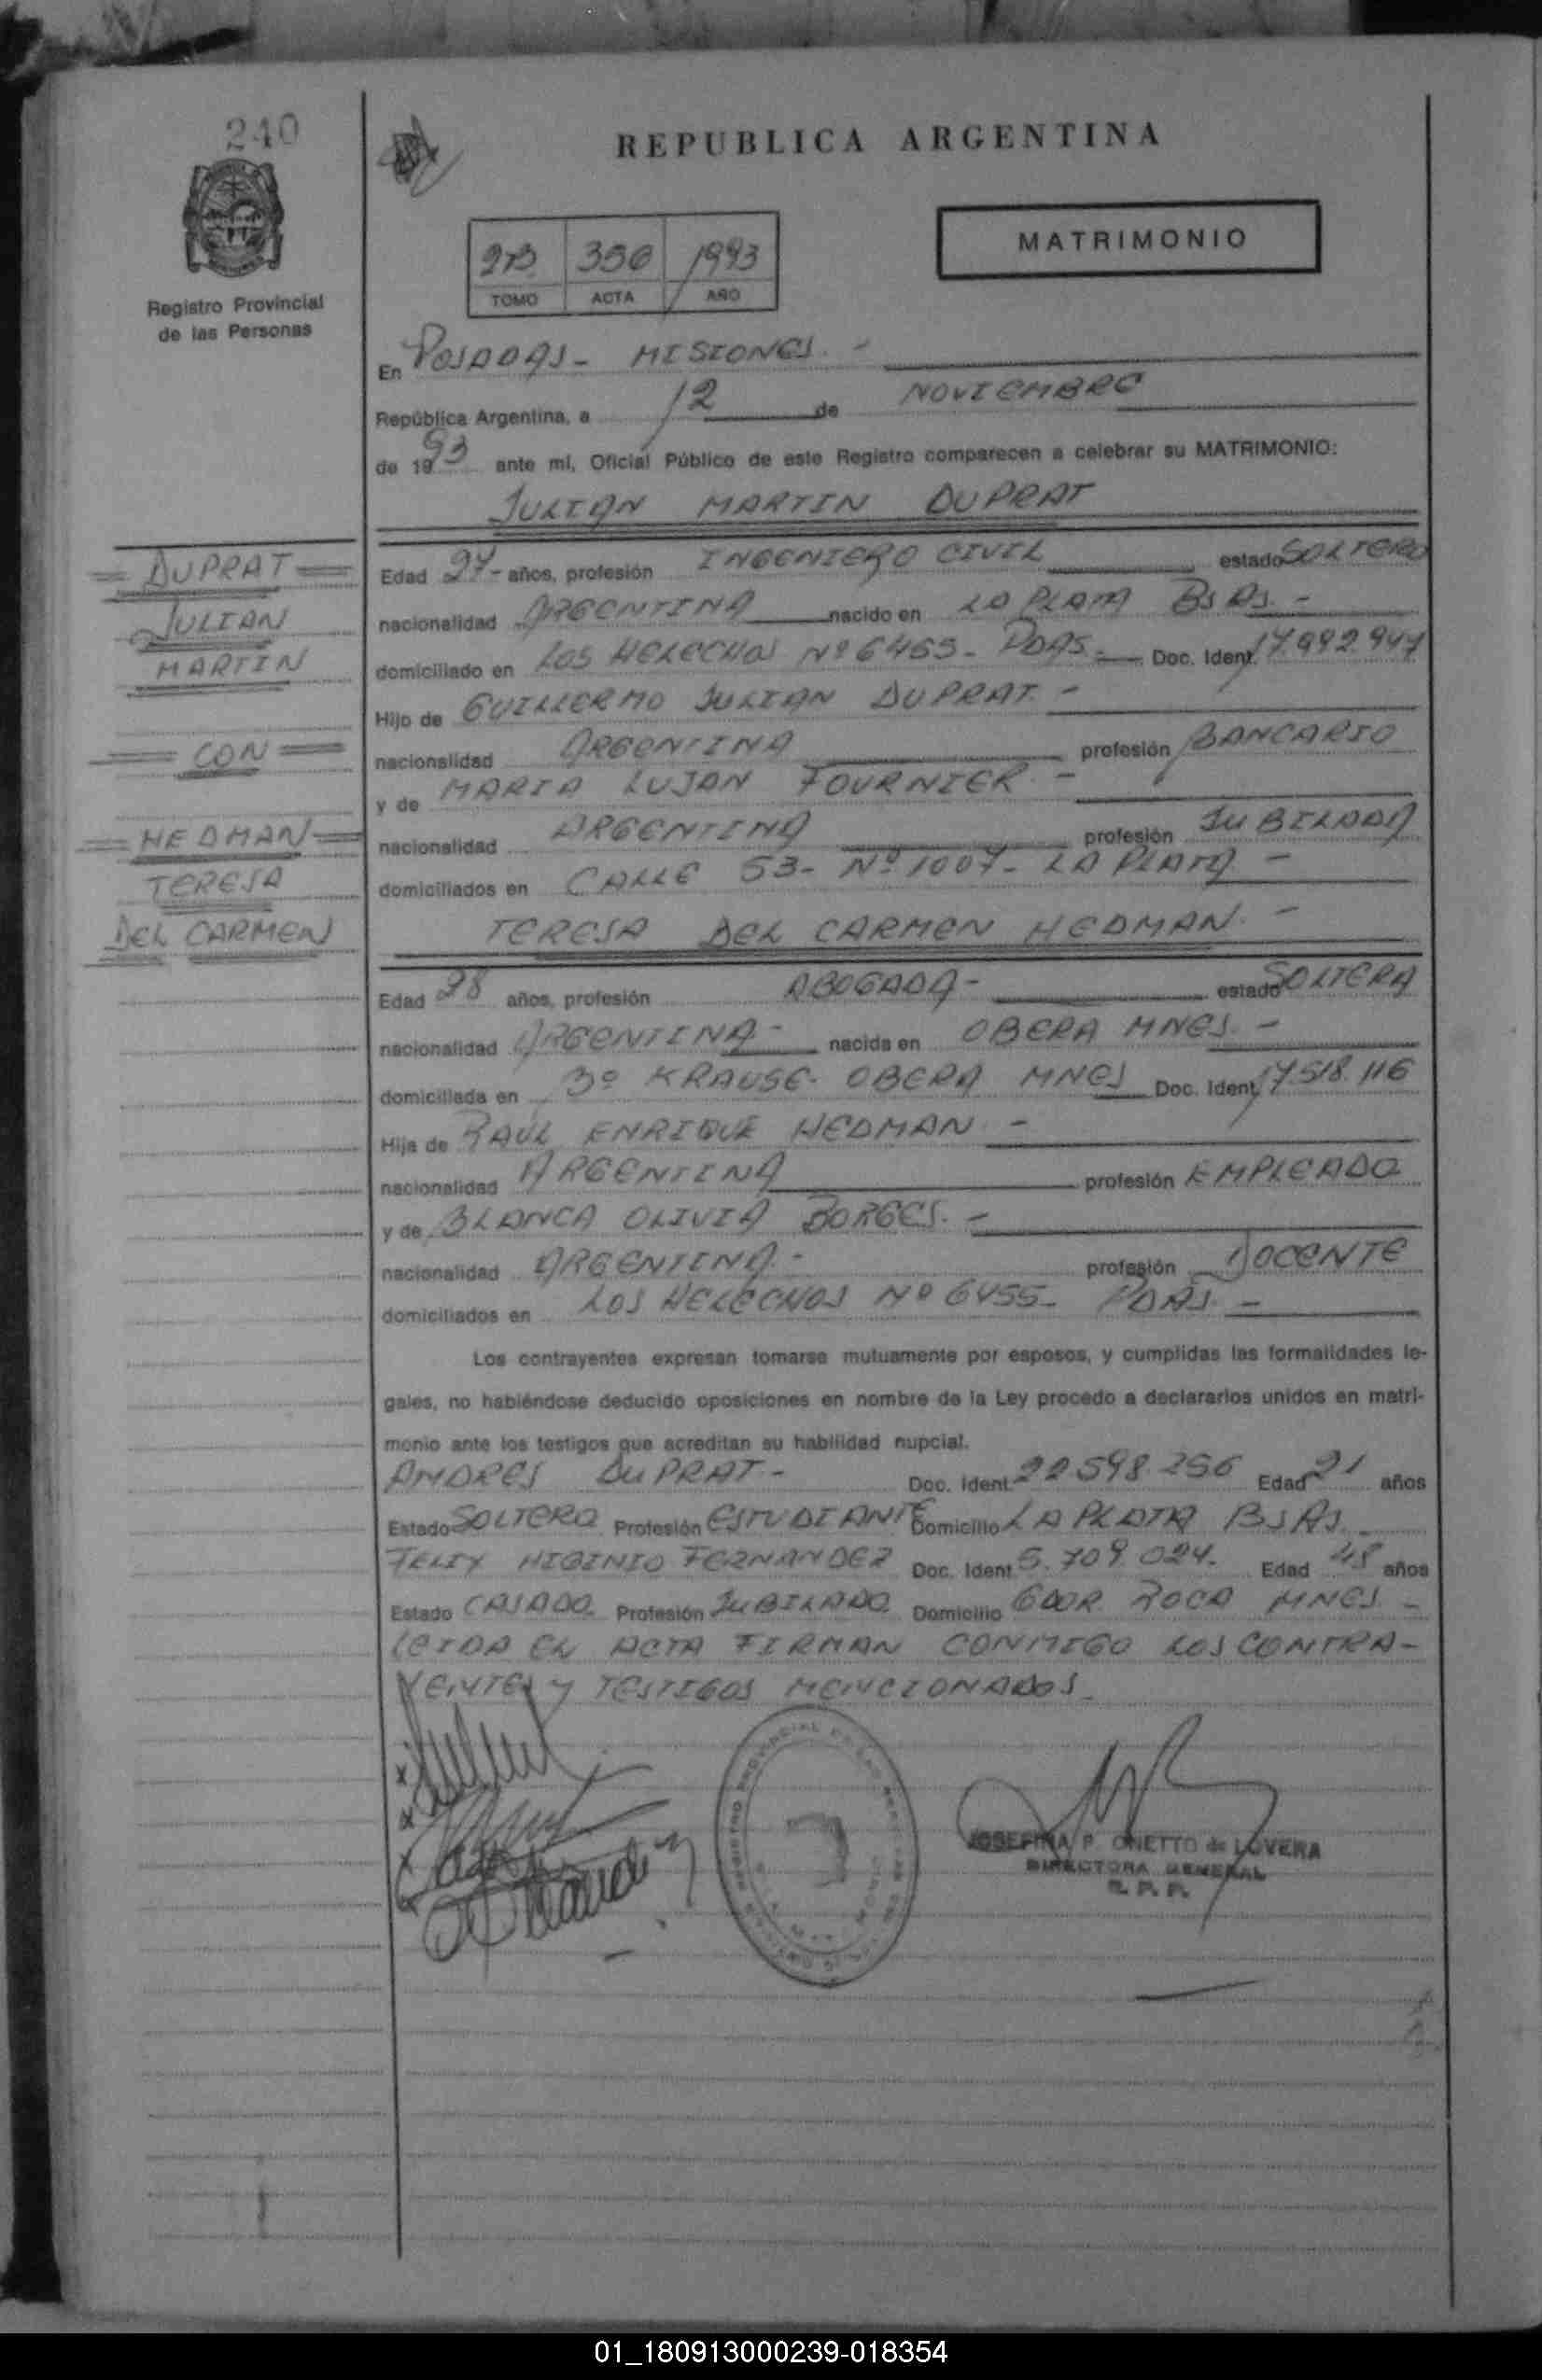 240
REPUBLICA ARGENTINA
MATRIMONIO
1993
TOMO ACTA AÑO
Registro Provincial
de las Personas
En POSADAS - MISIONES. -
República Argentina, a 12 de NOVIEMBRE
de 1993 ante mi, Oficial Público de este Registro comparecen a celebrar su MATRIMONIO:
JULIAN MARTIN DUPRAT
DUPRAT
JULIAN
MARTIN
CON
HEDMAN
TERESA
DEL CARMEN
Edad 27- años, profesión INGENIERO CIVIL estado SOLTERO
nacionalidad ARGENTINA nacido en LA PLATA BS AS. -
domiciliado en LOS HELECHOS Nº 6465 - PDAS. - Doc. Ident. 17.992.947
Hijo de GUILLERMO JULIAN DUPRAT. -
nacionalidad ARGENTINA profesión BANCARIO
y de MARIA LUJAN FOURNIER. -
nacionalidad ARGENTINA profesión JUBILADA
domiciliados en CALLE 53 - Nº 1007 - LA PLATA -
TERESA DEL CARMEN HEDMAN. -
Edad 28 años, profesión ABOGADA - estado SOLTERA
nacionalidad ARGENTINA - nacida en OBERA MNES. -
domiciliada en Bº KRAUSE - OBERA MNES Doc. Ident. 17.518.116
Hija de RAUL ENRIQUE HEDMAN. -
nacionalidad ARGENTINA profesión EMPLEADO
y de BLANCA OLIVIA BORGES. -
nacionalidad ARGENTINA. - profesión DOCENTE
domiciliados en LOS HELECHOS Nº 6455 - PDAS. -
Los contrayentes expresan tomarse mutuamente por esposos, y cumplidas las formalidades le-
gales, no habiéndose deducido oposiciones en nombre de la Ley procedo a declararlos unidos en matri-
monio ante los testigos que acreditan su habilidad nupcial.
ANDRES DUPRAT. - Doc. Ident. 22.598.256 Edad 21 años
Estado SOLTERO Profesión ESTUDIANTE Domicilio LA PLATA BS AS.
FELIX HIGINIO FERNANDEZ Doc. Ident. 5.709.024. Edad 48 años
Estado CASADO. Profesión JUBILADO. Domicilio GDOR. ROCA MNES -
LEIDA EL ACTA FIRMAN CONMIGO LOS CONTRA-
YENTES Y TESTIGOS MENCIONADOS -
JOSEFINA P. ONETTO de LOVERA
DIRECTORA GENERAL
R. P. P.
01_180913000239-018354